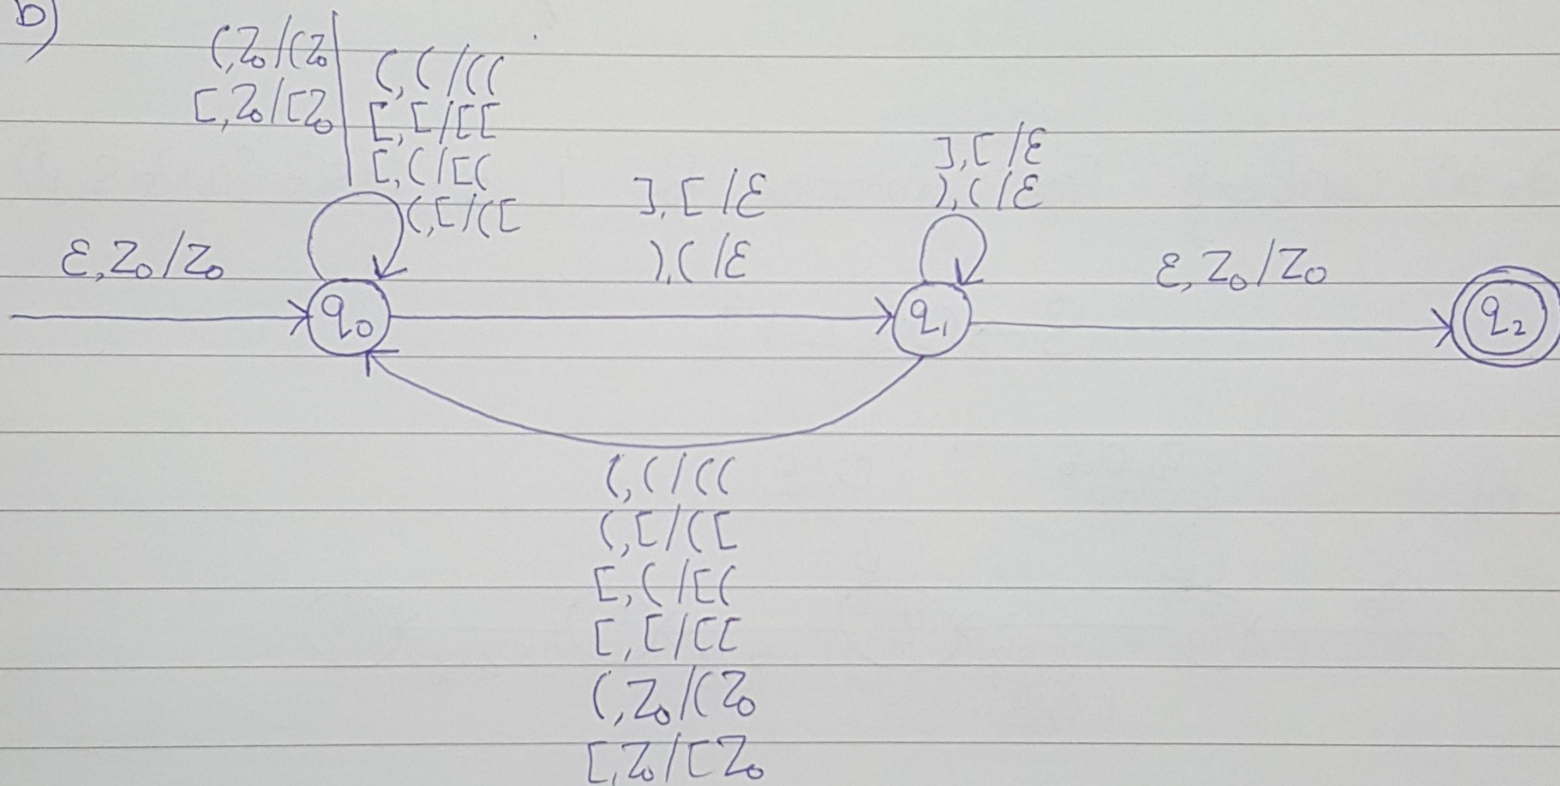 b)
(,Z₀/(Z₀
[,Z₀/[Z₀
(,(/((
[,[/[[
[,(/[(
(,[/([
ε,Z₀/Z₀
q₀
],[/ε
),(/ε
],[/ε
),(/ε
q₁
ε,Z₀/Z₀
q₂
(,(/((
(,[/([
[,(/[(
[,[/[[
(,Z₀/(Z₀
[,Z₀/[Z₀